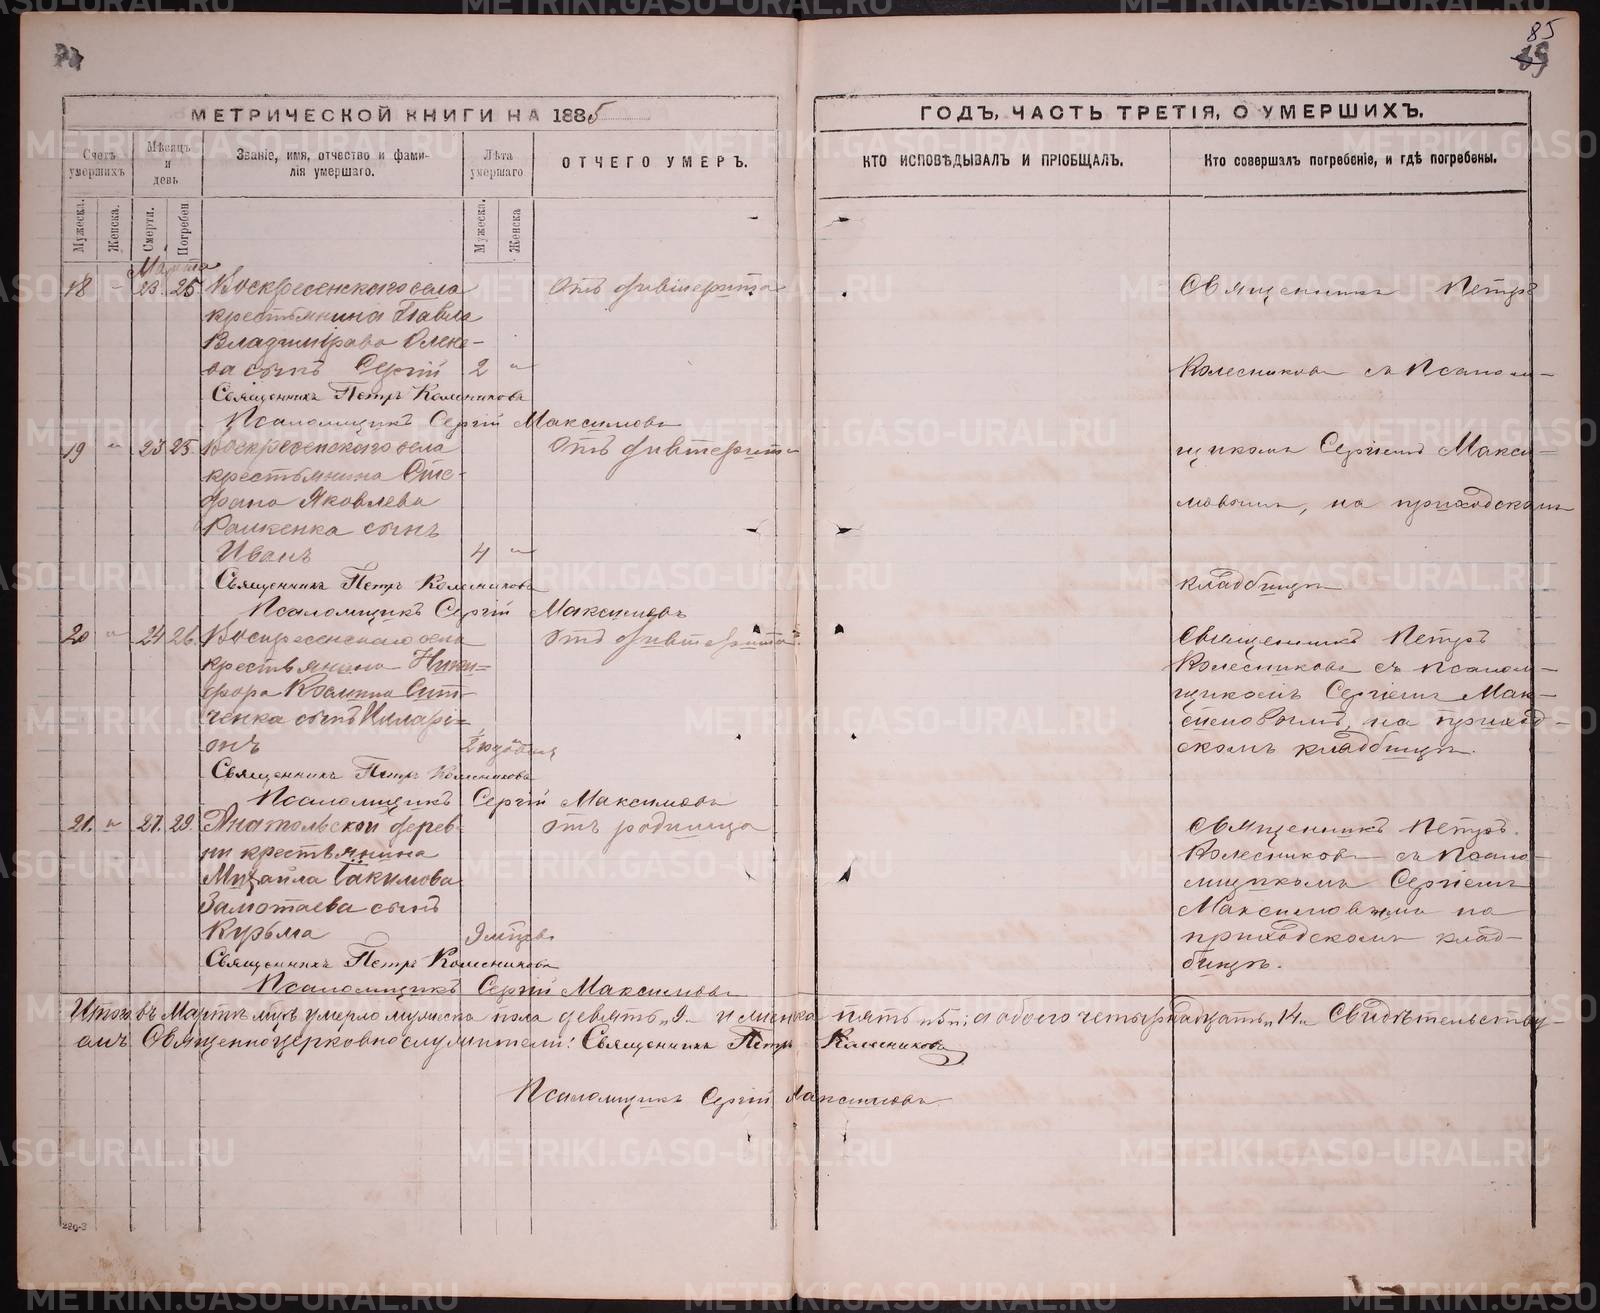 85
МЕТРИЧЕСКОЙ КНИГИ НА 1885
ГОДЪ, ЧАСТЬ ТРЕТІЯ, О УМЕРШИХЪ.
Счетъ умершихъ
Мѣсяцъ и день
Званіе, имя, отчество и фами-
лія умершаго.
Лѣта умершаго
ОТЧЕГО УМЕРЪ.
КТО ИСПОВѢДЫВАЛЪ И ПРІОБЩАЛЪ.
Кто совершалъ погребеніе, и гдѣ погребены.
Мужеска.
Женска.
Смерти.
Погребен
Мужеска.
Женска
Марта
18 - 23 25 Воскресенскаго села
крестьянина Павла
Владимірова
ва сынъ Сергій 2 "
Отъ дифтерита
Священникъ Петръ
Колесниковъ съ псалом-
Священникъ Петръ Колесниковъ
Псаломщикъ Сергій Максимовъ
19 " 23 25 Воскресенскаго села
крестьянина Сте-
фана Яковлева
сынъ
Иванъ 4 "
Отъ дифтерита
щикомъ Сергіемъ Макси-
мовымъ, на приходскомъ
кладбищѣ
Священникъ Петръ Колесниковъ
Псаломщикъ Сергій Максимовъ
20 " 24 26 Воскресенскаго села
крестьянина Ники-
фора Козмина
ченка сынъ Иларі-
онъ
Отъ дифтерита
Священникъ Петръ
Колесниковъ съ псалом-
щикомъ Сергіемъ Мак-
симовымъ, на приход-
скомъ кладбищѣ.
Священникъ Петръ Колесниковъ
Псаломщикъ Сергій Максимовъ
21. " 27. 29. Анатольской дерев-
ни крестьянина
Михаила Іакимова
Замотаева сынъ
Курьма 9 мѣцев
отъ родимца
Священникъ Петръ
Колесниковъ съ псало-
мщикомъ Сергіемъ
Максимовымъ на
приходскомъ клад-
бищѣ.
Священникъ Петръ Колесниковъ
Псаломщикъ Сергій Максимовъ
Итого въ Мартѣ мцѣ умерло мужеска пола девять „9„ и женска пять „5„; а обоего четырнадцать „14„ Свидѣтельству-
емъ Священноцерковнослужители: Священникъ Петръ Колесниковъ
Псаломщикъ Сергій Максимовъ
220-3
METRIKI.GASO-URAL.RU